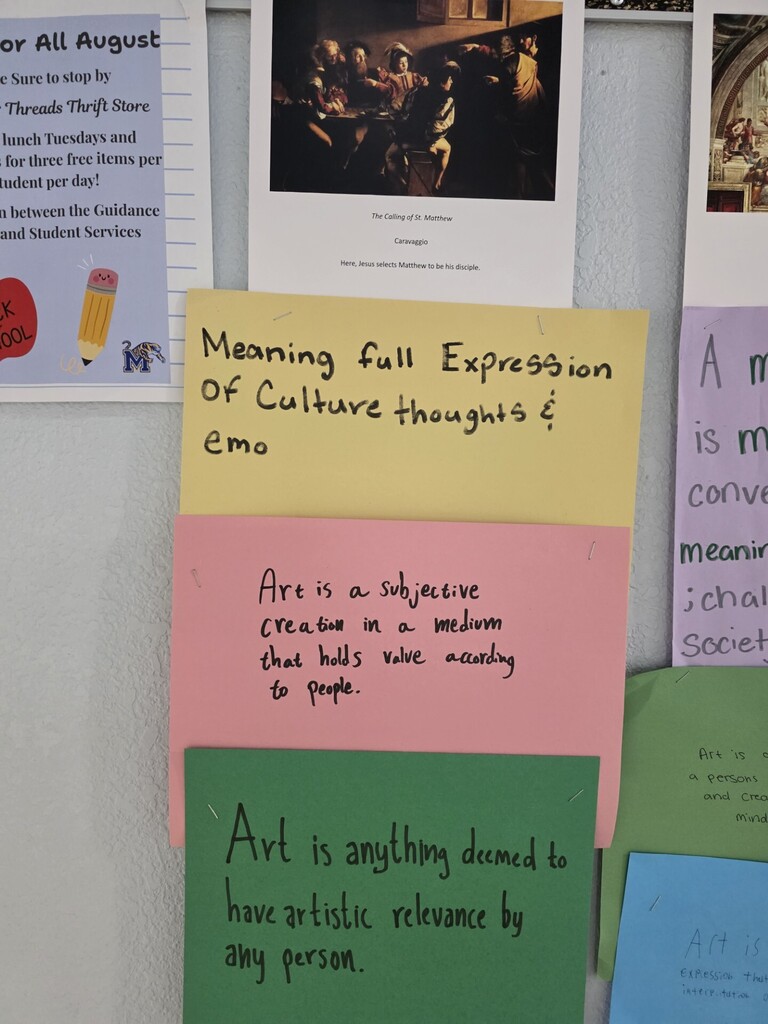 or All August
e Sure to stop by
Threads Thrift Store
lunch Tuesdays and
s for three free items per
tudent per day!
n between the Guidance
and Student Services
CK
OOL
M
The Calling of St. Matthew
Caravaggio
Here, Jesus selects Matthew to be his disciple.
Meaning full Expression
Of Culture thoughts &
emo
Art is a subjective
creation in a medium
that holds value according
to people.
Art is anything deemed to
have artistic relevance by
any person.
A m
is m
conve
meanin
;chal
Societ
Art is
a persons
and crea
mind
Art is
Expression that